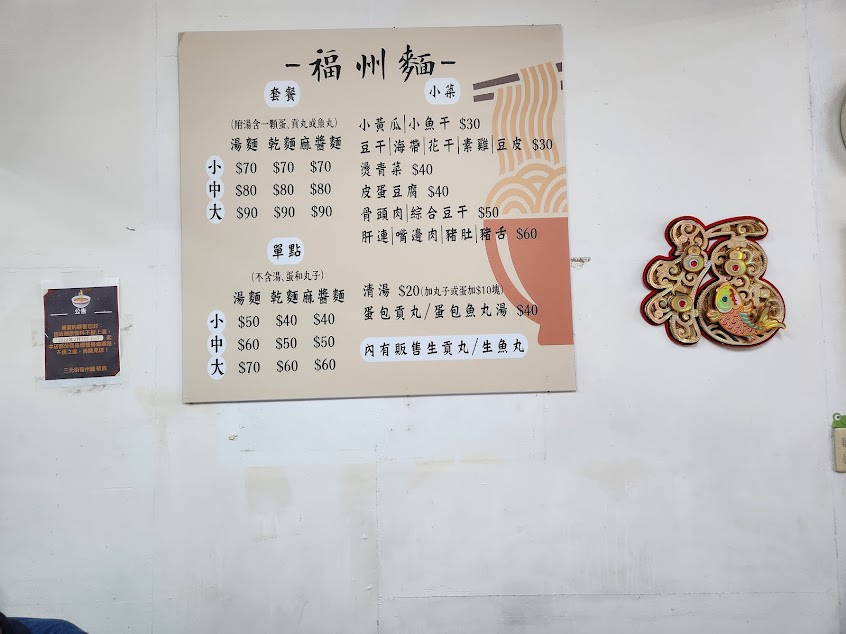 -福州麵-
套餐
(附湯含一顆蛋、貢丸或魚丸)
湯麵 乾麵 麻醬麵
小 $70 $70 $70
中 $80 $80 $80
大 $90 $90 $90
單點
(不含湯、蛋和丸子)
湯麵 乾麵 麻醬麵
小 $50 $40 $40
中 $60 $50 $50
大 $70 $60 $60
小菜
小黃瓜|小魚干 $30
豆干|海帶|花干|素雞|豆皮 $30
燙青菜 $40
皮蛋豆腐 $40
骨頭肉|綜合豆干 $50
肝連|嘴邊肉|豬肚|豬舌 $60
清湯 $20(加丸子或蛋加$10塊)
蛋包貢丸/蛋包魚丸湯 $40
內有販售生貢丸/生魚丸
公告
福